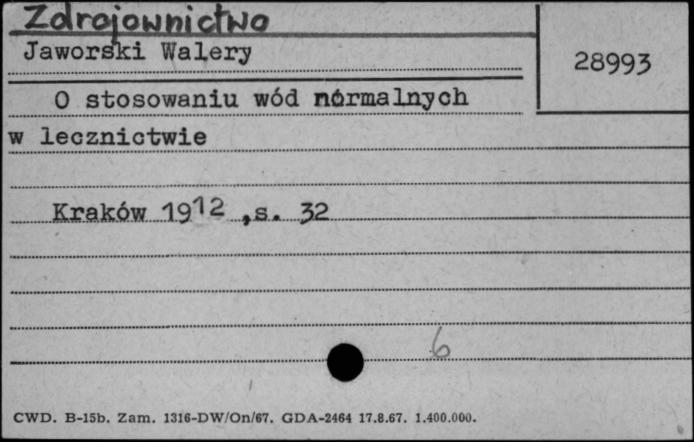 Zdrojownictwo
Jaworski Walery
28993
O stosowaniu wód normalnych
w lecznictwie
Kraków 1912 ,s. 32
6
CWD. B-15b. Zam. 1316-DW/On/67. GDA-2464 17.8.67. 1.400.000.